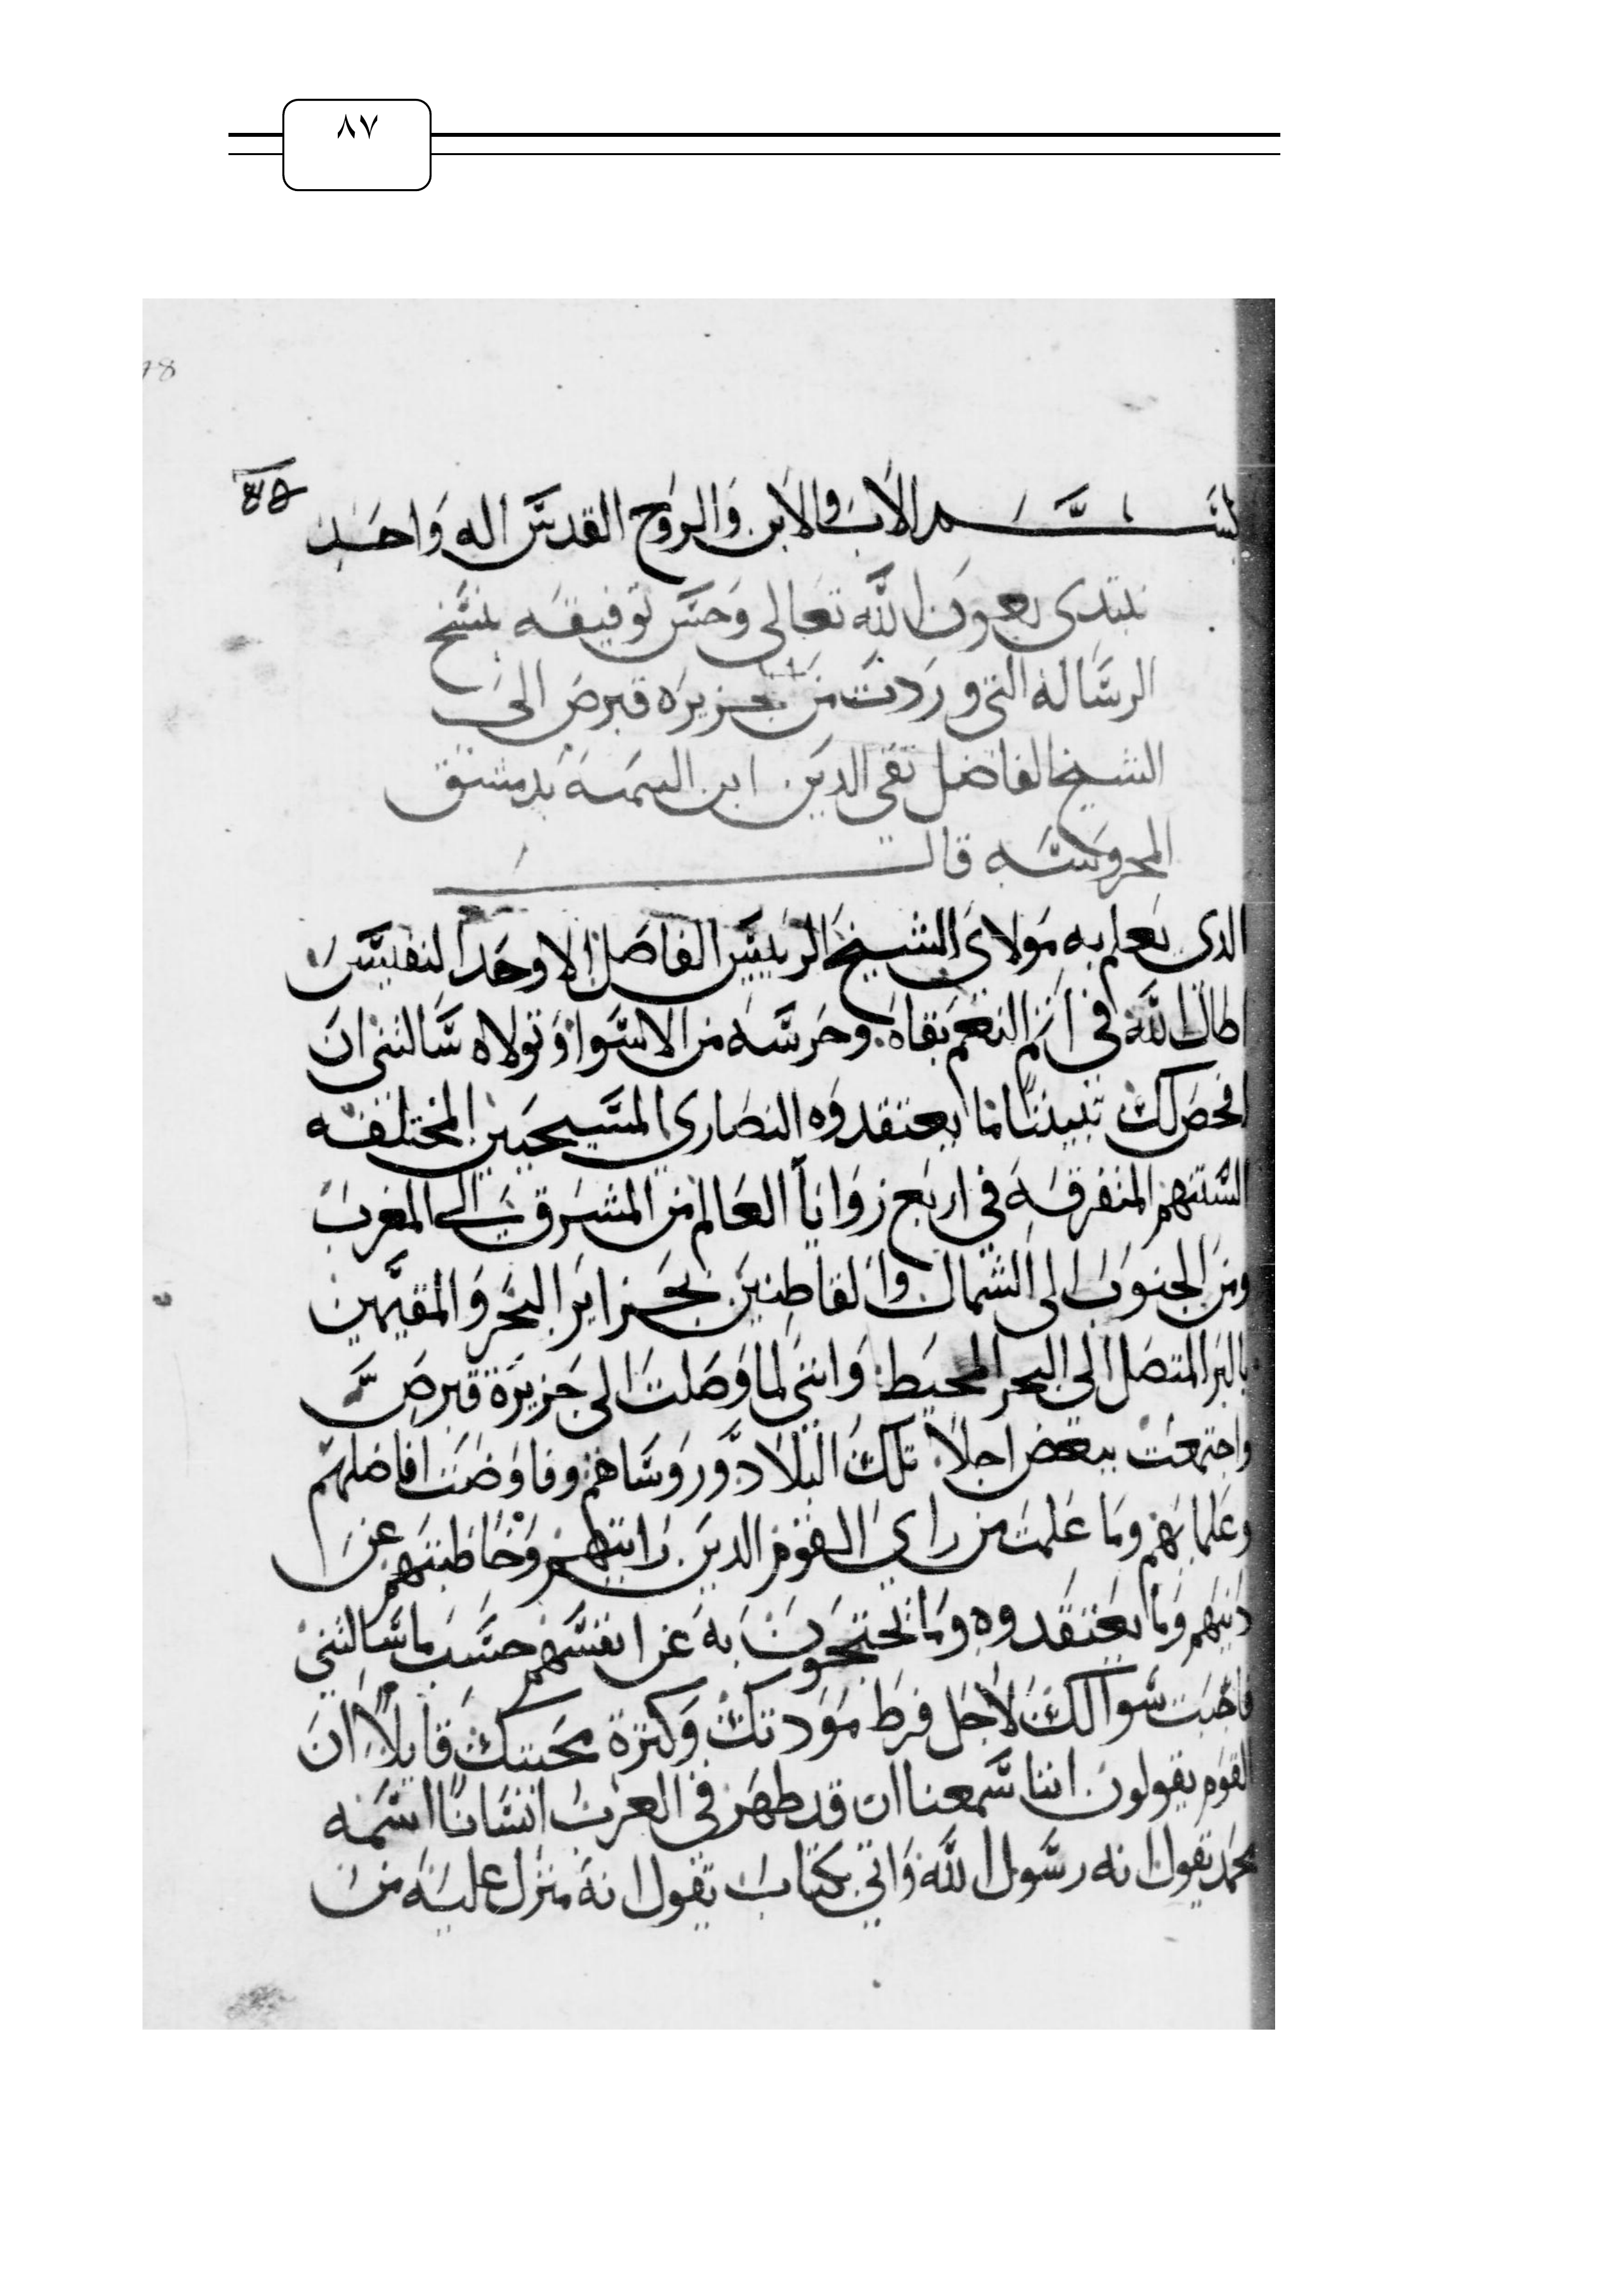 ٨٧
78
بسم الاب والابن والروح القدس اله واحد
نبتدى بعون الله تعالى وحسن توفيقه بنسخ
الرساله التى وردت من جزيره قبرص الى
الشيخ الفاضل تقى الدين ابن التيميه بدمشق
المحروسه قال
الذى يعلم به مولاى الشيخ الرييس الفاضل الاوحد النفيس
اطال الله فى اتم النعم بقاه وحرسه من الاسوا وتولاه سالتنى ان
افحص لك تبينا ما يعتقدوه النصارى المسيحيين المختلفه
السنتهم المتفرقه فى اربع زوايا العالم من المشرق الى المغرب
ومن الجنوب الى الشمال والقاطنين بجزاير البحر والمقيمين
بالبر المتصل الى البحر المحيط واننى لما وصلت الى جزيرة قبرص
واجتمعت ببعض اجلا تلك البلاد وروساهم وفاوضت افاضلهم
وعلمايهم وما علمت من راي القوم الدين رايتهم وخاطبتهم عن
دينهم وما يعتقدوه وما يحتجون به عن انفسهم حسب ما سالتنى
فاجبت سوالك لاجل فرط مودتك وكثرة محبتك قايلا ان
القوم يقولون اننا سمعنا ان قد ظهر في العرب انسانا اسمه
محمد يقول انه رسول الله واتى بكتاب يقول انه منزل عليه من